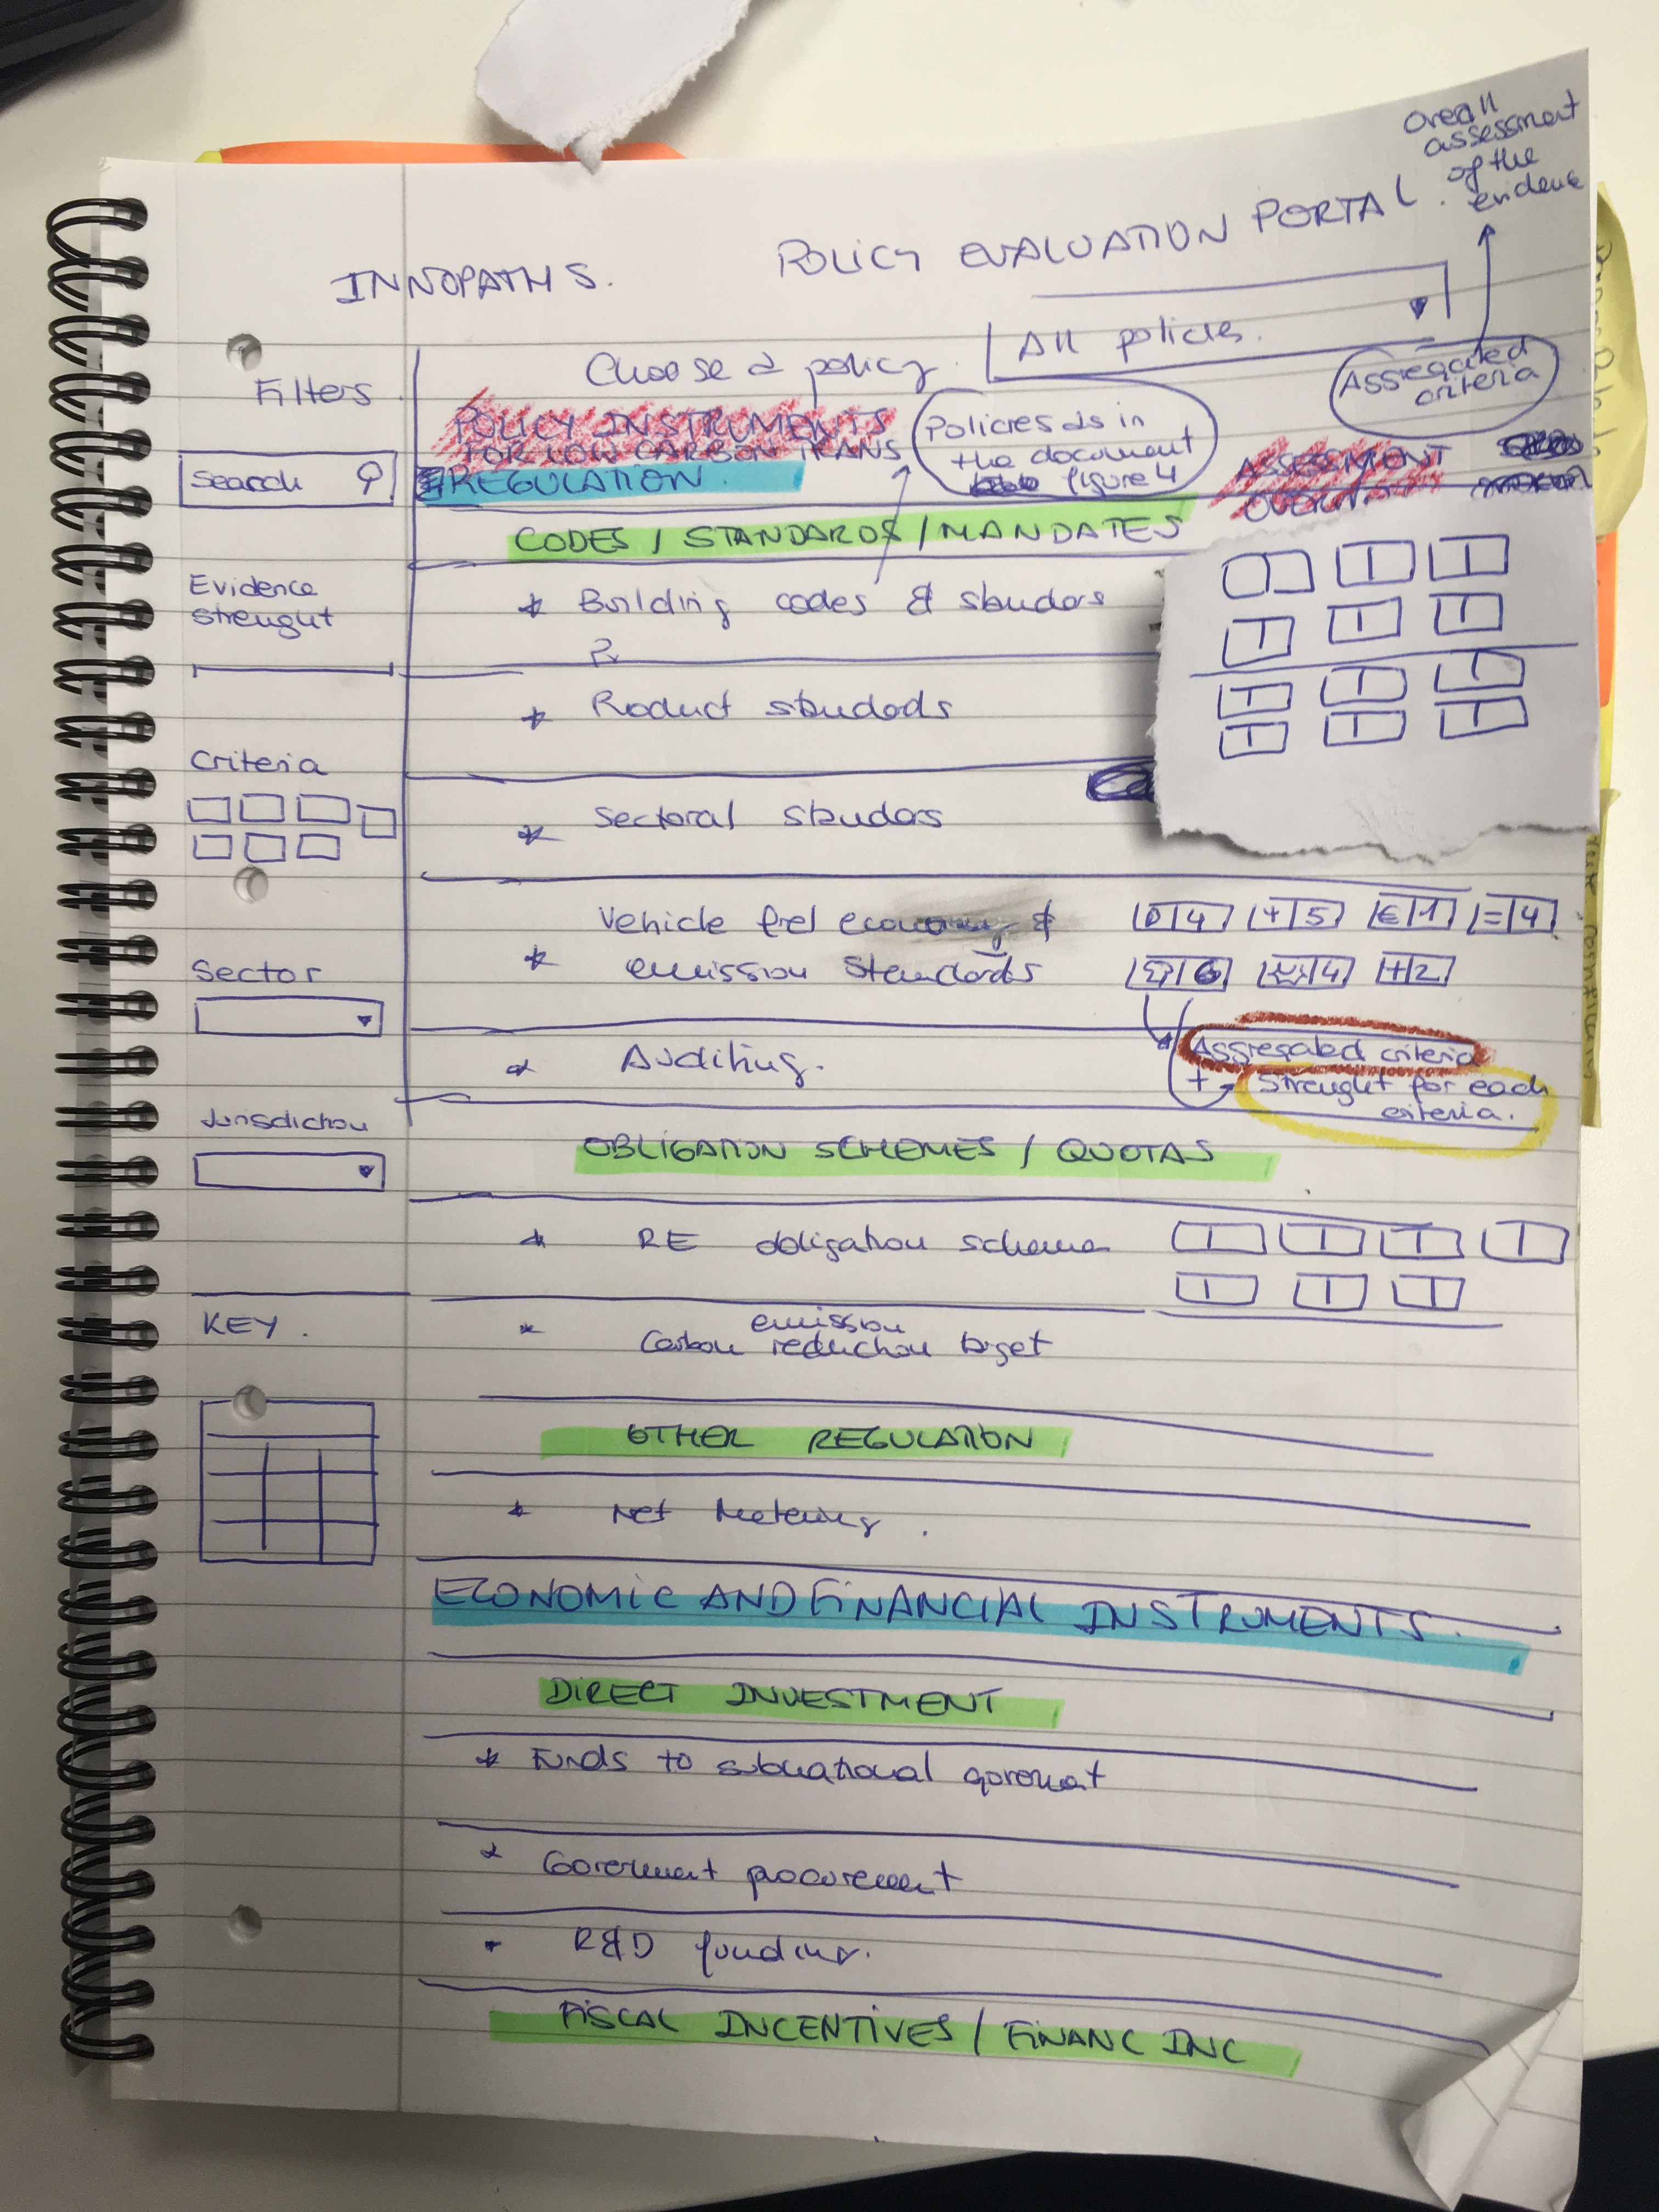 overall
assessment
of the
evidence
INNOPATHS.
POLICY EVALUATION PORTAL.
Choose a policy.
All policies.
Aggregated
criteria
Filters
POLICY INSTRUMENTS
FOR LOW CARBON TRANS
Policies as in
the document
figure 4
ASSESSMENT
Search
REGULATION.
CODES / STANDARDS / MANDATES
Evidence
strenght
* Building codes & stbudars
* Product stbudads
Criteria
* Sectoral stbudars
Vehicle fuel economy &
* emission standards
0 4 + 5 € 1 = 4
6 4 + 2
Sector
* Auditing.
Aggregated criteria
+ Strenght for each
criteria.
Jurisdiction
OBLIGATION SCHEMES / QUOTAS
* RE obligation scheme
KEY.
emission
* Carbon reduction target
OTHER REGULATION
* Net Metering.
ECONOMIC AND FINANCIAL INSTRUMENTS.
DIRECT INVESTMENT
* Funds to subnational goverment
* Goverment procurement
R&D funding.
FISCAL INCENTIVES / FINANC INC